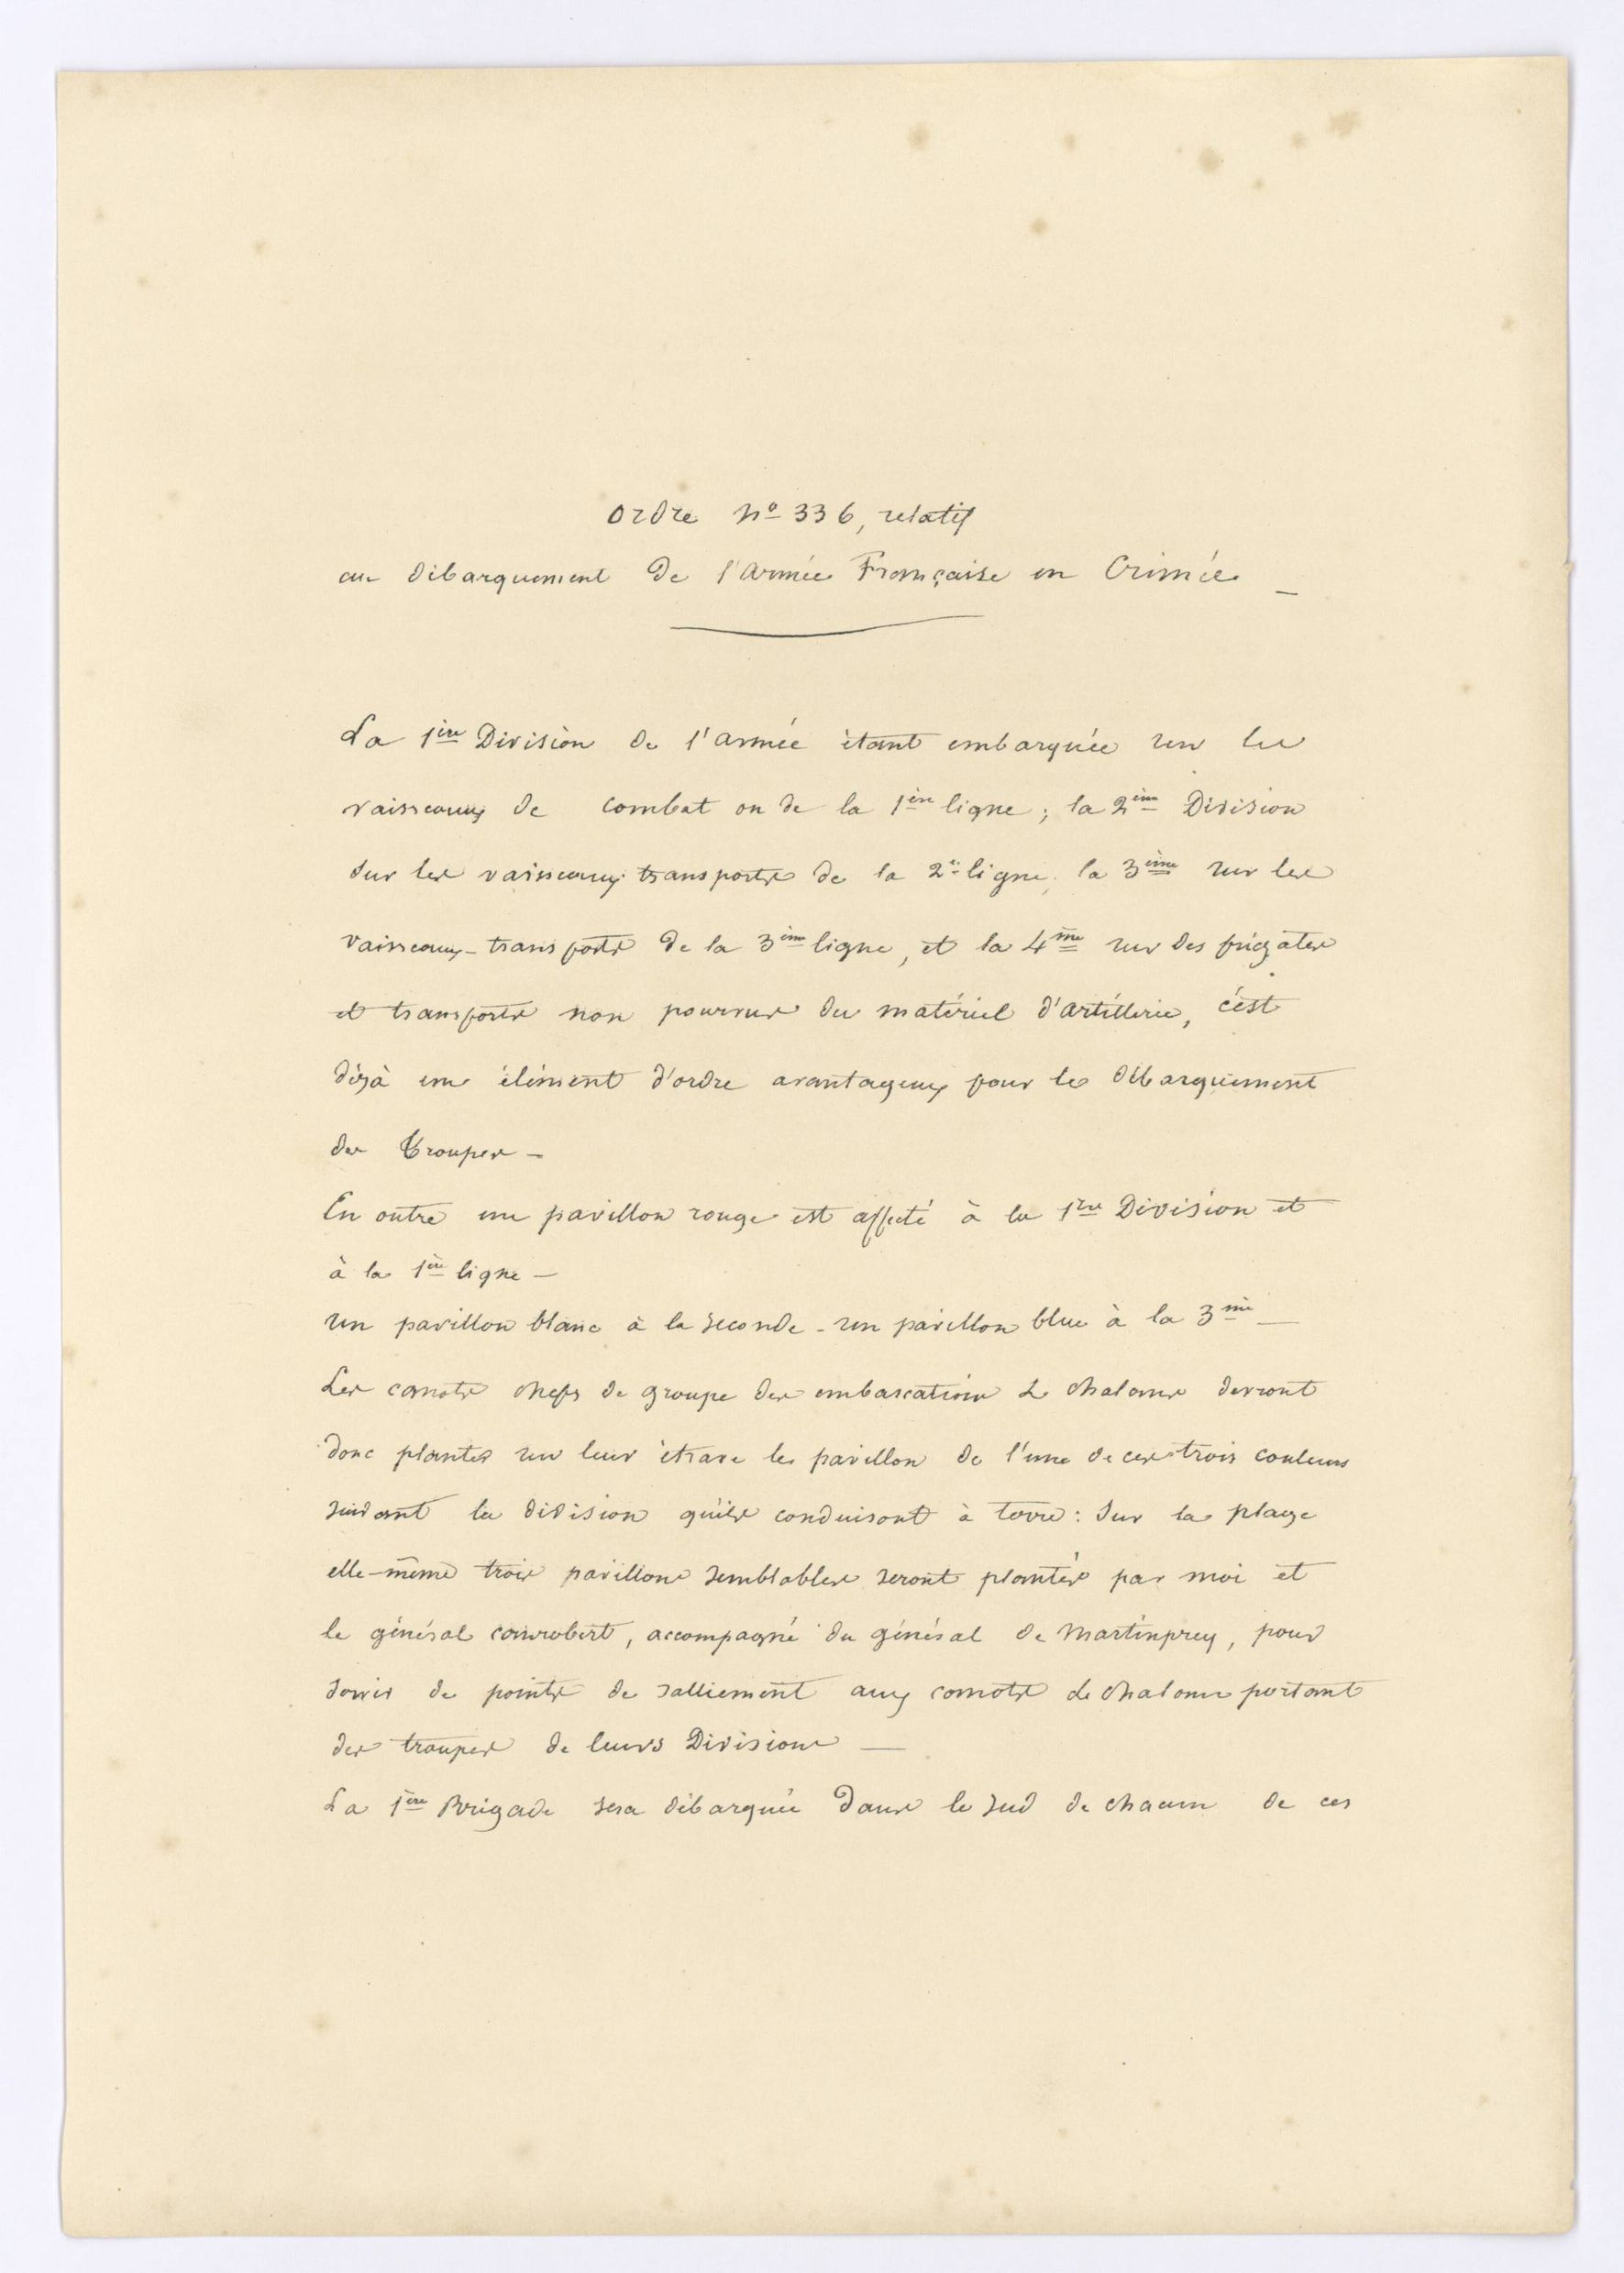 Ordre No 336, relatif
au débarquement de l'armée Française en Crimée _
La 1ère Division de l'armée étant embarquée sur les
vaisseaux de combat ou de la 1ère ligne ; la 2ème Division
sur les vaisseaux transports de la 2e ligne, la 3ème sur les
vaisseaux-transports de la 3ème ligne, et la 4me sur des frégates
et transports non pourvus du matériel d'artillerie, c'est
déjà un élément d'ordre avantageux pour le débarquement
des Troupes -
En outre un pavillon rouge est affecté à la 1re Division et
à la 1ère ligne -
un pavillon blanc à la seconde - un pavillon bleu à la 3me _
Les canots chefs de groupe des embarcations & chalans devront
donc planter sur leur étrave le pavillon de l'une de ces trois couleurs
suivant la division qu'ils conduisent à terre : sur la plage
elle-même trois pavillons semblables seront plantés par moi et
le général canrobert, accompagné du général de Martimprey, pour
servir de points de ralliement aux canots & chalans portant
des troupes de leurs Divisions _
La 1ère Brigade sera débarquée dans le sud de chacun de ces